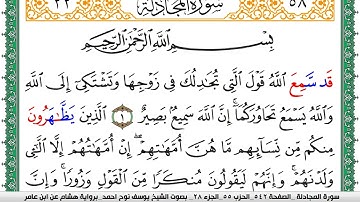 ٢٢ سورة المجادلة ٥٨
بِسْمِ اللَّهِ الرَّحْمَٰنِ الرَّحِيمِ
قَد سَّمِعَ اللَّهُ قَوْلَ الَّتِي تُجَٰدِلُكَ فِي زَوْجِهَا وَتَشْتَكِي إِلَى اللَّهِ
وَاللَّهُ يَسْمَعُ تَحَاوُرَكُمَا إِنَّ اللَّهَ سَمِيعٌ بَصِيرٌ ١ الَّذِينَ يَظَّٰهَرُونَ
مِنكُم مِّن نِّسَآئِهِم مَّا هُنَّ أُمَّهَٰتِهِمْ إِنْ أُمَّهَٰتُهُمْ إِلَّا الَّٰٓـِٔي
وَلَدْنَهُمْ وَإِنَّهُمْ لَيَقُولُونَ مُنكَرًا مِّنَ الْقَوْلِ وَزُورًا وَإِنَّ
سورة المجادلة . الصفحة ٥٤٢ . الحزب ٥٥ . الجزء ٢٨ . بصوت الشيخ يوسف نوح احمد . برواية هشام عن ابن عامر